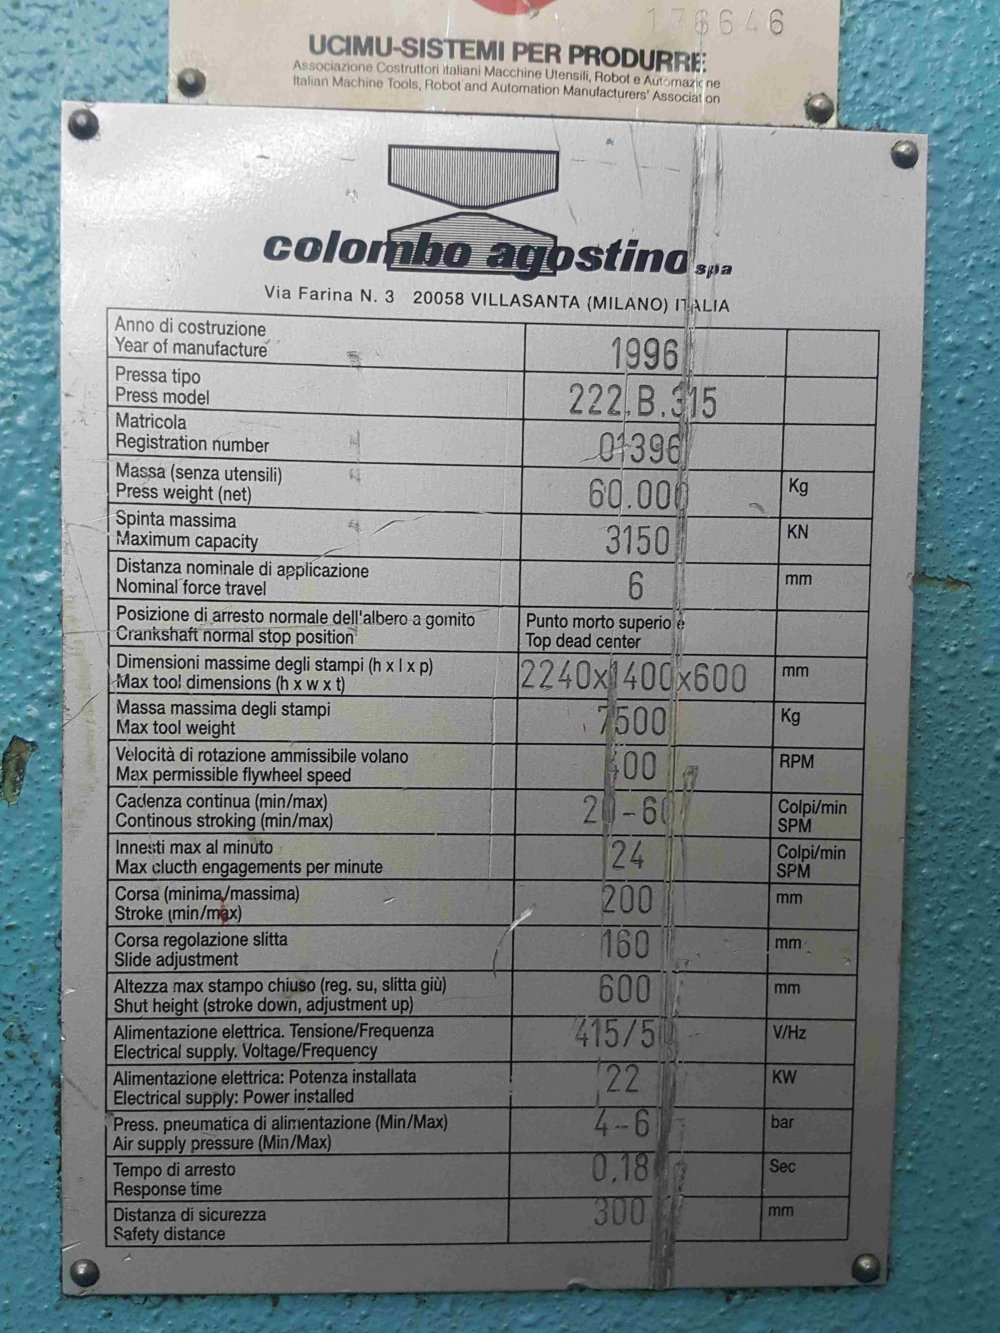 176646
UCIMU-SISTEMI PER PRODURRE
Associazione Costruttori italiani Macchine Utensili, Robot e Automazione
Italian Machine Tools, Robot and Automation Manufacturers' Association
colombo agostino spa
Via Farina N. 3 20058 VILLASANTA (MILANO) ITALIA
Anno di costruzione
Year of manufacture 1996
Pressa tipo
Press model 222.B.315
Matricola
Registration number 01396
Massa (senza utensili)
Press weight (net) 60.000 Kg
Spinta massima
Maximum capacity 3150 KN
Distanza nominale di applicazione
Nominal force travel 6 mm
Posizione di arresto normale dell'albero a gomito Punto morto superiore
Crankshaft normal stop position Top dead center
Dimensioni massime degli stampi (h x l x p)
Max tool dimensions (h x w x t) 2240x1400x600 mm
Massa massima degli stampi
Max tool weight 7500 Kg
Velocità di rotazione ammissibile volano
Max permissible flywheel speed RPM
Cadenza continua (min/max) Colpi/min
Continous stroking (min/max) 20-60 SPM
Innesti max al minuto Colpi/min
Max clucth engagements per minute 24 SPM
Corsa (minima/massima)
Stroke (min/max) 200 mm
Corsa regolazione slitta
Slide adjustment 160 mm
Altezza max stampo chiuso (reg. su, slitta giù)
Shut height (stroke down, adjustment up) 600 mm
Alimentazione elettrica. Tensione/Frequenza
Electrical supply. Voltage/Frequency 415/50 V/Hz
Alimentazione elettrica: Potenza installata
Electrical supply: Power installed 22 KW
Press. pneumatica di alimentazione (Min/Max)
Air supply pressure (Min/Max) 4-6 bar
Tempo di arresto
Response time 0,18 Sec
Distanza di sicurezza
Safety distance 300 mm